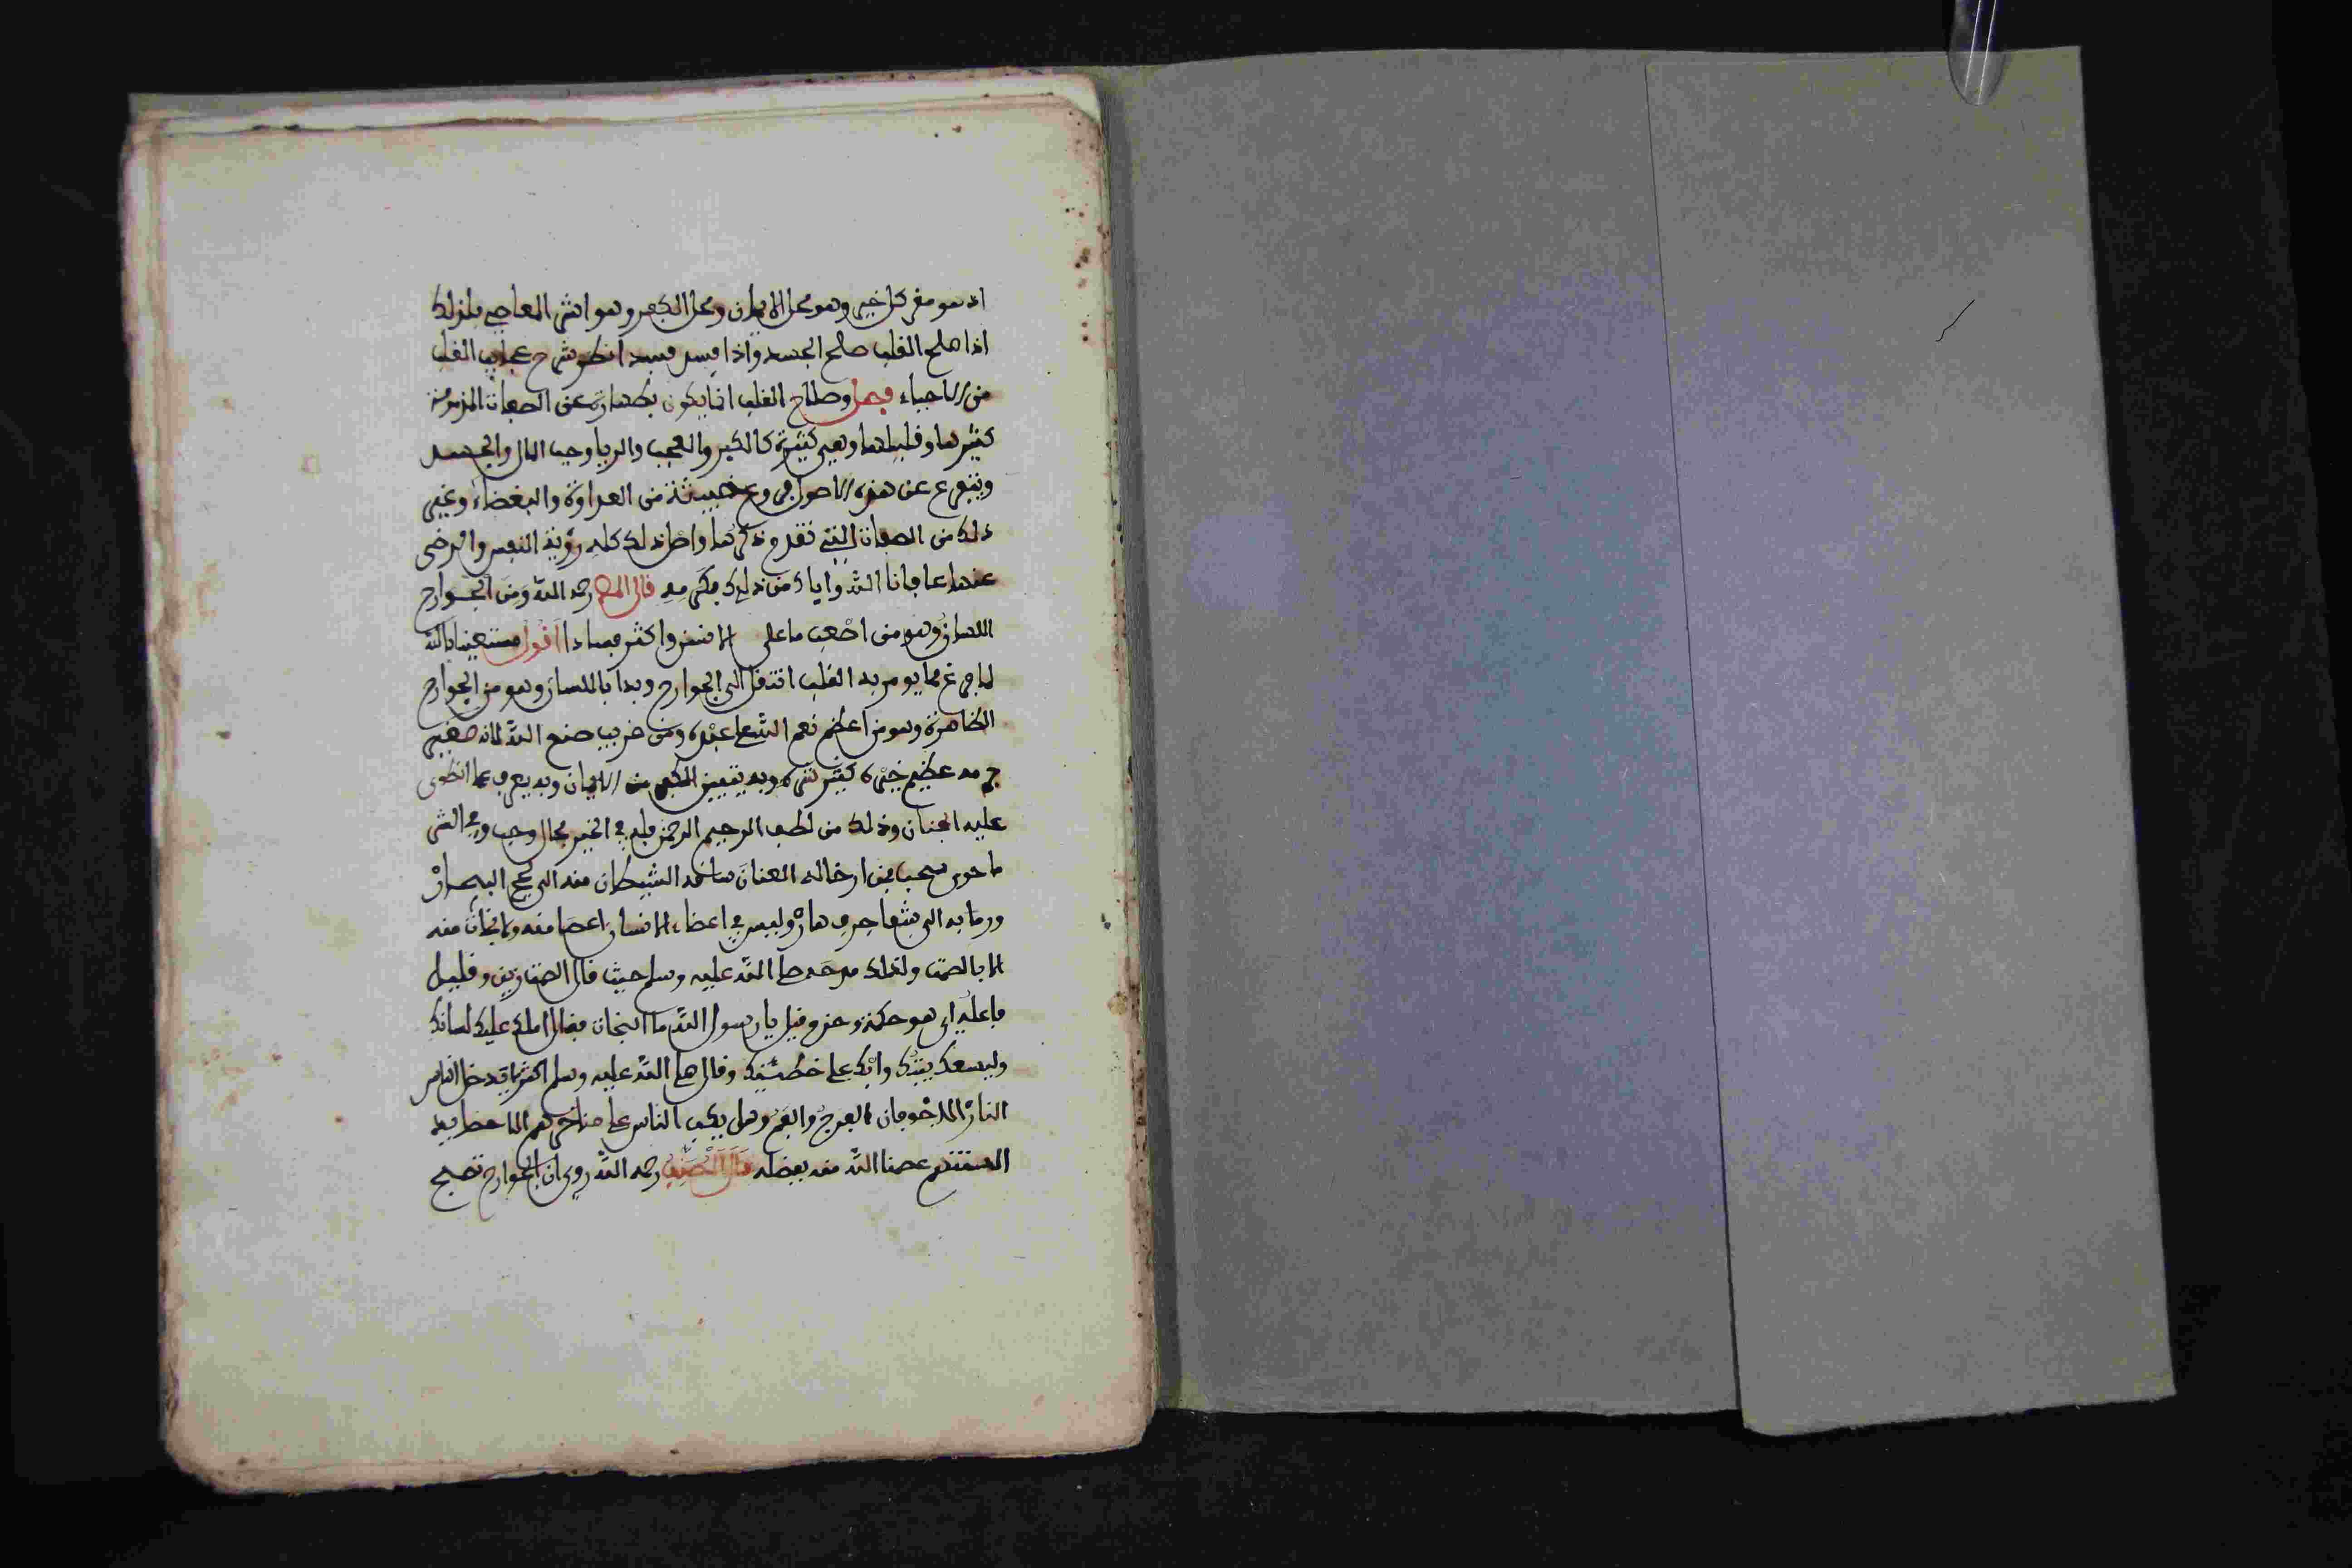 اذ هو مقر كل خير وهو محل الايمان ومحل الكفر وهو اشر المعاصي فلذلك
اذا صلح القلب صلح الجسد واذا فسد فسد انظر شرح عجايب القلب
من الاحياء فصل وصلاح القلب انما يكون بطهارته عن الصفات المذمومة
كثيرها وقليلها وهي كثيرة كالكبر والعجب والريا وحب المال والحسد
ويتفرع عن هذه الاصول فروع خبيثة من العداوة والبغضاء وغير
ذلك من الصفات التي تقدم ذكرها واصل ذلك كله رؤية النفس والرضى
عنها عافانا الله واياك من ذلك بكرمه قال المص رحمه الله ومن الجوارح
اللسان وهو من اصعب ما على الانسن واكثر فسادا اقول مستعينا بالله
لما فرغ مما يومر به القلب انتقل الى الجوارح وبدا باللسان وهو من الجوارح
الظاهرة وهو من اعظم نعم الله على عبده ومن غريب صنع الله لانه صغير
جرمه عظيم خيره كثير شره وبه يتبين الكفر من الايمان وبه يعرف ما انطوى
عليه الجنان وذلك من لطف الرحيم الرحمن فله في الخير مجال رحب وفي الشر
ما حوى سحب فمن ارخا له العنان ساقه الشيطان منه الى لجج البحار
ورما به الى شفا جرف هار وليس في اعضاء الانسان اعصا منه ولا نجات منه
الا بالصمت ولذلك مدحه صلى الله عليه وسلم حيث قال الصمت زين وقليل
فاعله اي هو حكمة وحزم وقيل يا رسول الله ما النجات فقال املك عليك لسانك
وليسعك بيتك وابك على خطيئتك وقال صلى الله عليه وسلم اكثر ما يدخل الناس
النار الاجوفان الفرج والفم وهل يكب الناس على مناخرهم الا حصايد
السنتهم عصمنا الله منه بفضله قال المصنف رحمه الله روي ان الجوارح تصبح